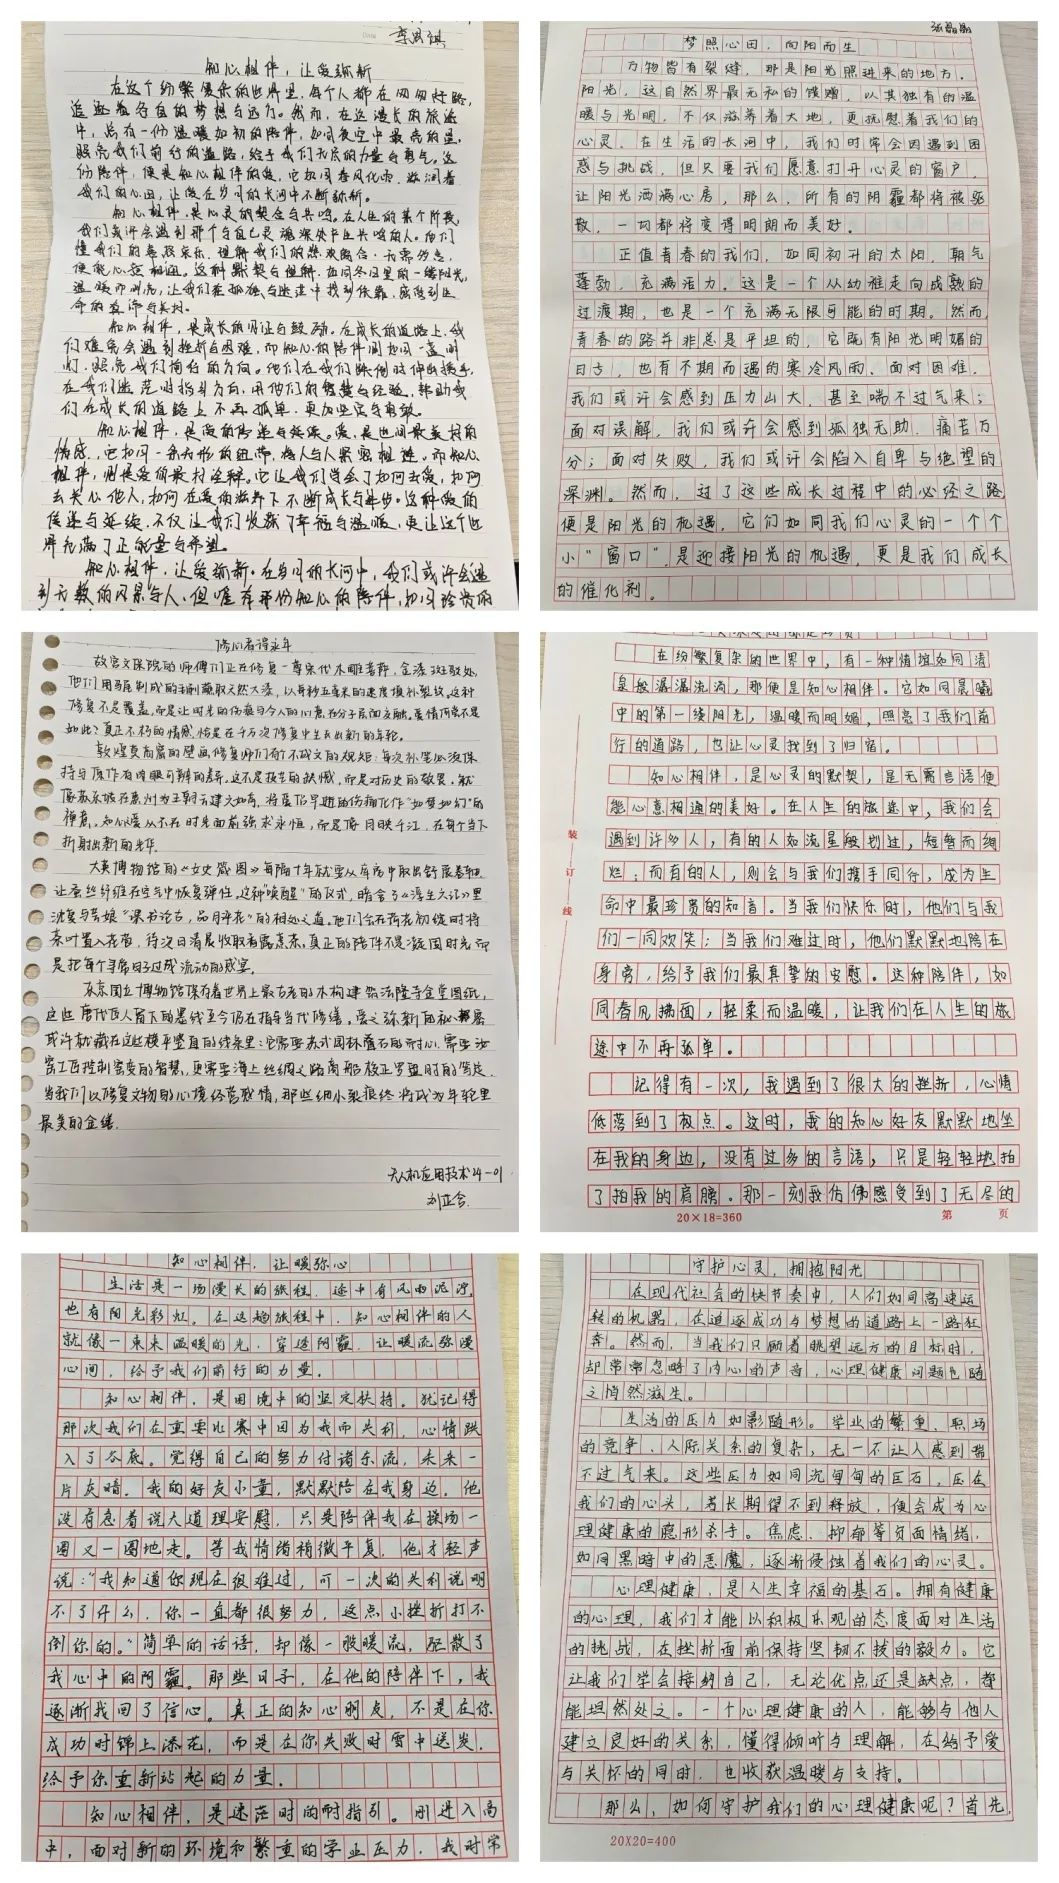 知心相伴，让爱弥新
在这个纷繁复杂的世界里，每个人都在匆匆赶路，
追逐着各自的梦想与远方。然而，在这漫长的旅途
中，总有一份温暖如初的陪伴，如同夜空中最亮的星，
照亮我们前行的道路，给予我们无尽的力量与勇气。这
份陪伴，便是知心相伴的爱，它如同春风化雨，滋润着
我们的心田，让爱在岁月的长河中不断弥新。
知心相伴，是心灵的契合与共鸣。在人生的某个阶段，
我们或许会遇到那个与自己灵魂深处产生共鸣的人。他们
懂我们的喜怒哀乐，理解我们的悲欢离合，无需多言，
便能心灵相通。这种默契与理解，如同冬日里的一缕阳光，
温暖而明亮，让我们在孤独与迷茫中找到依靠，感受到生
命的美好与美妙。
知心相伴，是成长的见证与鼓励。在成长的道路上，我
们难免会遇到挫折与困难，而知心的陪伴则如同一盏明
灯，照亮我们前行的方向。他们在我们跌倒时伸出援手，
在我们迷茫时指引方向，用他们的智慧与经验，帮助我
们在成长的道路上不再孤单，更加坚定与勇敢。
知心相伴，是爱的传递与延续。爱，是世间最美好的
情感，它如同一条无形的纽带，将人与人紧密相连。而知心
相伴，则是爱的最好诠释。它让我们学会了如何去爱，如何
去关心他人，如何在爱的滋养下不断成长与进步。这种爱的
传递与延续，不仅让我们收获了幸福与温暖，更让这个世
界充满了正能量与希望。
知心相伴，让爱弥新。在岁月的长河中，我们或许会遇
到无数的风景与人，但唯有那份知心的陪伴，如同珍贵的
梦照心田，向阳而生
万物皆有裂缝，那是阳光照进来的地方。
阳光，这自然界最无私的馈赠，以其独有的温
暖与光明，不仅滋养着大地，更抚慰着我们的
心灵。在生活的长河中，我们时常会因遇到困
惑与挑战，但只要我们愿意打开心灵的窗户，
让阳光洒满心房，那么，所有的阴霾都将被驱
散，一切都将变得明朗而美好。
正值青春的我们，如同初升的太阳，朝气
蓬勃，充满活力。这是一个从幼稚走向成熟的
过渡期，也是一个充满无限可能的时期。然而，
青春的路并非总是平坦的，它既有阳光明媚的
日子，也有不期而遇的寒冷风雨。面对困难，
我们或许会感到压力山大，甚至喘不过气来；
面对误解，我们或许会感到孤独无助，痛苦万
分；面对失败，我们或许会陷入自卑与绝望的
深渊。然而，过了这些成长过程中的心经之路，
便是阳光的机遇，它们如同我们心灵的一个个
小“窗口”，是迎接阳光的机遇，更是我们成长
的催化剂。
修心看得永年
故宫文保院的师傅们正在修复一尊宋代木雕菩萨，金漆斑驳处，
他们用马尾制成的毛刷蘸取天然大漆，以每秒五毫米的速度填补裂纹，这种
修复不是覆盖，而是让时光的伤痕与今人的心意在分子层面交融。爱情何尝不是
如此？真正不朽的情感，恰是在千万次修复中生长出新的年轮。
敦煌莫高窟的壁画修复师们有个不成文的规矩：每次补笔必须保
持与原作有肉眼可辨的差异。这不是技艺的缺憾，而是对历史的敬畏。就
像苏东坡在惠州为王朝云建六如亭，将爱侣早逝的伤痛化作“如梦如幻”的
禅意。知心爱从不在时光面前强求永恒，而是像月映千江，在每个当下
折射出新的光华。
大英博物馆的《女史箴图》每隔十年就要从库房中取出舒展卷轴，
让蚕丝纤维在空气中恢复弹性。这种“唤醒”的仪式，暗合了《浮生六记》里
沈复与芸娘“课书论古，品月评花”的相处之道。他们会在荷花初绽时将
茶叶置入花苞，待次日清晨收取着露煮茶，真正的陪伴不是凝固时光，而
是把每个寻常日子过成流动的盛宴。
东京国立博物馆保存着世界上最古老的木构建筑法隆寺金堂图纸，
这些唐代匠人留下的墨线至今仍在指导当代修缮。爱之弥新的秘密
或许就藏在这些横平竖直的线条里：它需要苏式园林叠石的耐心，需要汝
窑工匠控制窑变的智慧，更需要海上丝绸之路商船校正罗盘时的笃定。
当我们以修复文物的心境经营感情，那些细小裂痕终将成为年轮里
最美的金缮。
无人机应用技术24-01
刘正合
在纷繁复杂的世界中，有一种情谊如同清
泉般潺潺流淌，那便是知心相伴。它如同晨曦
中的第一缕阳光，温暖而明媚，照亮了我们前
行的道路，也让心灵找到了归宿。
知心相伴，是心灵的默契，是无需言语便
能心意相通的美好。在人生的旅途中，我们会
遇到许多人，有的人如流星般划过，短暂而绚
烂；而有的人，则会与我们携手同行，成为生
命中最珍贵的知音。当我们快乐时，他们与我
们一同欢笑；当我们难过时，他们默默地陪在
身旁，给予我们最真挚的安慰。这种陪伴，如
同春风拂面，轻柔而温暖，让我们在人生的旅
途中不再孤单。
记得有一次，我遇到了很大的挫折，心情
低落到了极点。这时，我的知心好友默默地坐
在我的身边，没有过多的言语，只是轻轻地拍
了拍我的肩膀。那一刻我仿佛感受到了无尽的
装
订
线
20×18=360
第 页
知心相伴，让暖弥心
生活是一场漫长的旅程，途中有风雨泥泞，
也有阳光彩虹。在这趟旅程中，知心相伴的人
就像一束束温暖的光，穿透阴霾，让暖流弥漫
心间，给予我们前行的力量。
知心相伴，是困境中的坚定扶持。犹记得
那次我们在重要比赛中因为我而失利，心情跌
入了谷底。觉得自己的努力付诸东流，未来一
片灰暗。我的好友小童，默默陪在我身边。他
没有急着说大道理安慰，只是陪伴我在操场一
圈又一圈地走。等我情绪稍微平复，他才轻声
说：“我知道你现在很难过，可一次的失利说明
不了什么，你一直都很努力，这点小挫折打不
倒你的。”简单的话语，却像一股暖流，驱散了
我心中的阴霾。那些日子，在他的陪伴下，我
逐渐找回了信心。真正的知心朋友，不是在你
成功时锦上添花，而是在你失败时雪中送炭，
给予你重新站起的力量。
知心相伴，是迷茫时的耐指引。刚进入高
中，面对新的环境和繁重的学业压力，我时常
守护心灵，拥抱阳光
在现代社会的快节奏中，人们如同高速运
转的机器，在追逐成功与梦想的道路上一路狂
奔。然而，当我们只顾着眺望远方的目标时，
却常常忽略了内心的声音，心理健康问题也随
之悄然滋生。
生活的压力如影随形。学业的繁重、职场
的竞争、人际关系的复杂，无一不让人感到喘
不过气来。这些压力如同沉甸甸的巨石，压在
我们的心头，若长期得不到释放，便会成为心
理健康的隐形杀手。焦虑、抑郁等负面情绪，
如同黑暗中的恶魔，逐渐侵蚀着我们的心灵。
心理健康，是人生幸福的基石。拥有健康
的心理，我们才能以积极乐观的态度面对生活
的挑战，在挫折面前保持坚韧不拔的毅力。它
让我们学会接纳自己，无论优点还是缺点，都
能坦然处之。一个心理健康的人，能够与他人
建立良好的关系，懂得倾听与理解，在给予爱
与关怀的同时，也收获温暖与支持。
那么，如何守护我们的心理健康呢？首先，
20X20=400